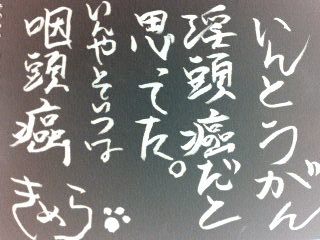 いんとうがん
淫頭癌だと
思ってた。
いんやそいつは
咽頭癌
きめら